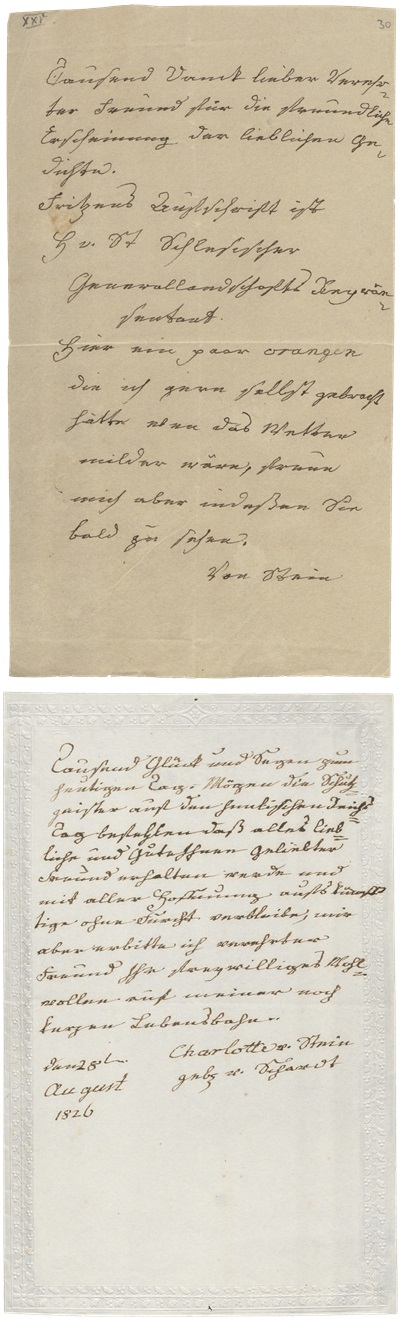 XXI
30
Tausend Danck lieber Vereh=
ter Freund für die freundliche
Erscheinung der lieblichen Ge=
dichte.
Fritzens Aufschrift ist
H v. St Schlesischer
Generallandschafts Reprän=
sentant.
Hier ein paar orangen
die ich gern selbst gebracht
hätte wenn das Wetter
milder wäre, freue
mich aber indeßen Sie
bald zu sehen.
Von Stein
Tausend Glück und Segen zum
heutigen Tag. Mögen die Schutz=
geister auf den himlischen Reichs=
Tag befehlen daß alles lieb=
liche und Gute Ihnen geliebter
Freund erhalten werde und
mit aller Hoffnung aufs künff=
tige ohne Furcht verbleibe, mir
aber erbitte ich verehrter
Freund Ihr freywilliges Wohl=
wollen auf meiner noch
kurzen Lebensbahn.
den 28ten Charlotte v. Stein
August geb. v. Schardt
1826